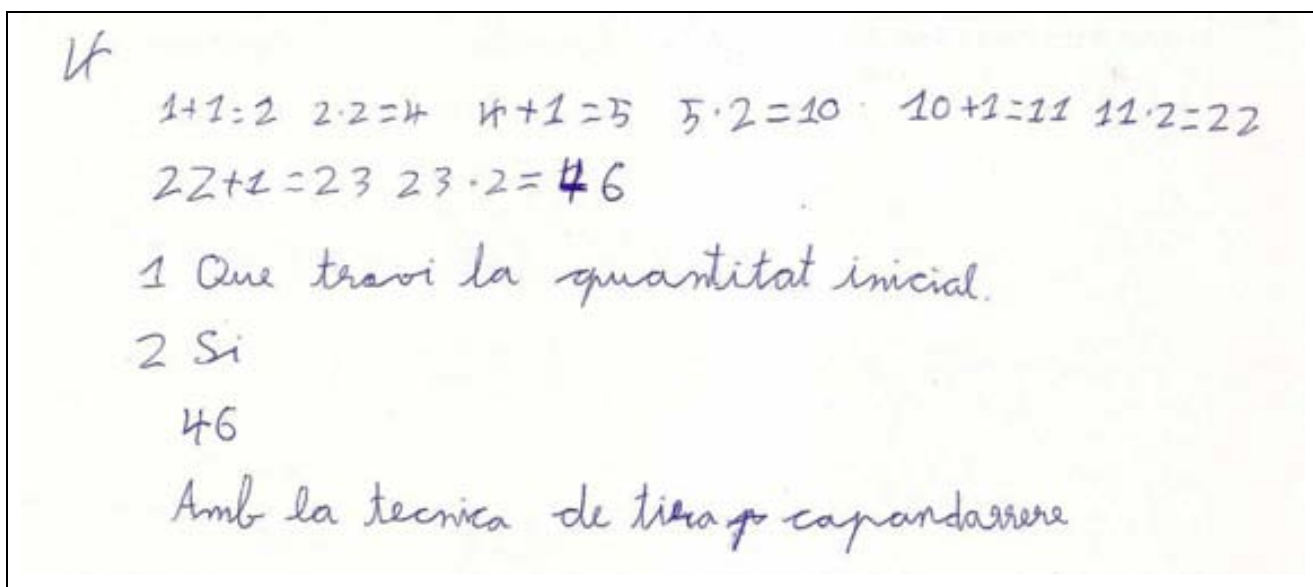 4
1+1=2 2·2=4 4+1=5 5·2=10 10+1=11 11·2=22
22+1=23 23·2=46
1 Que travi la quantitat inicial.
2 Si
46
Amb la tecnica de tira capandarrere